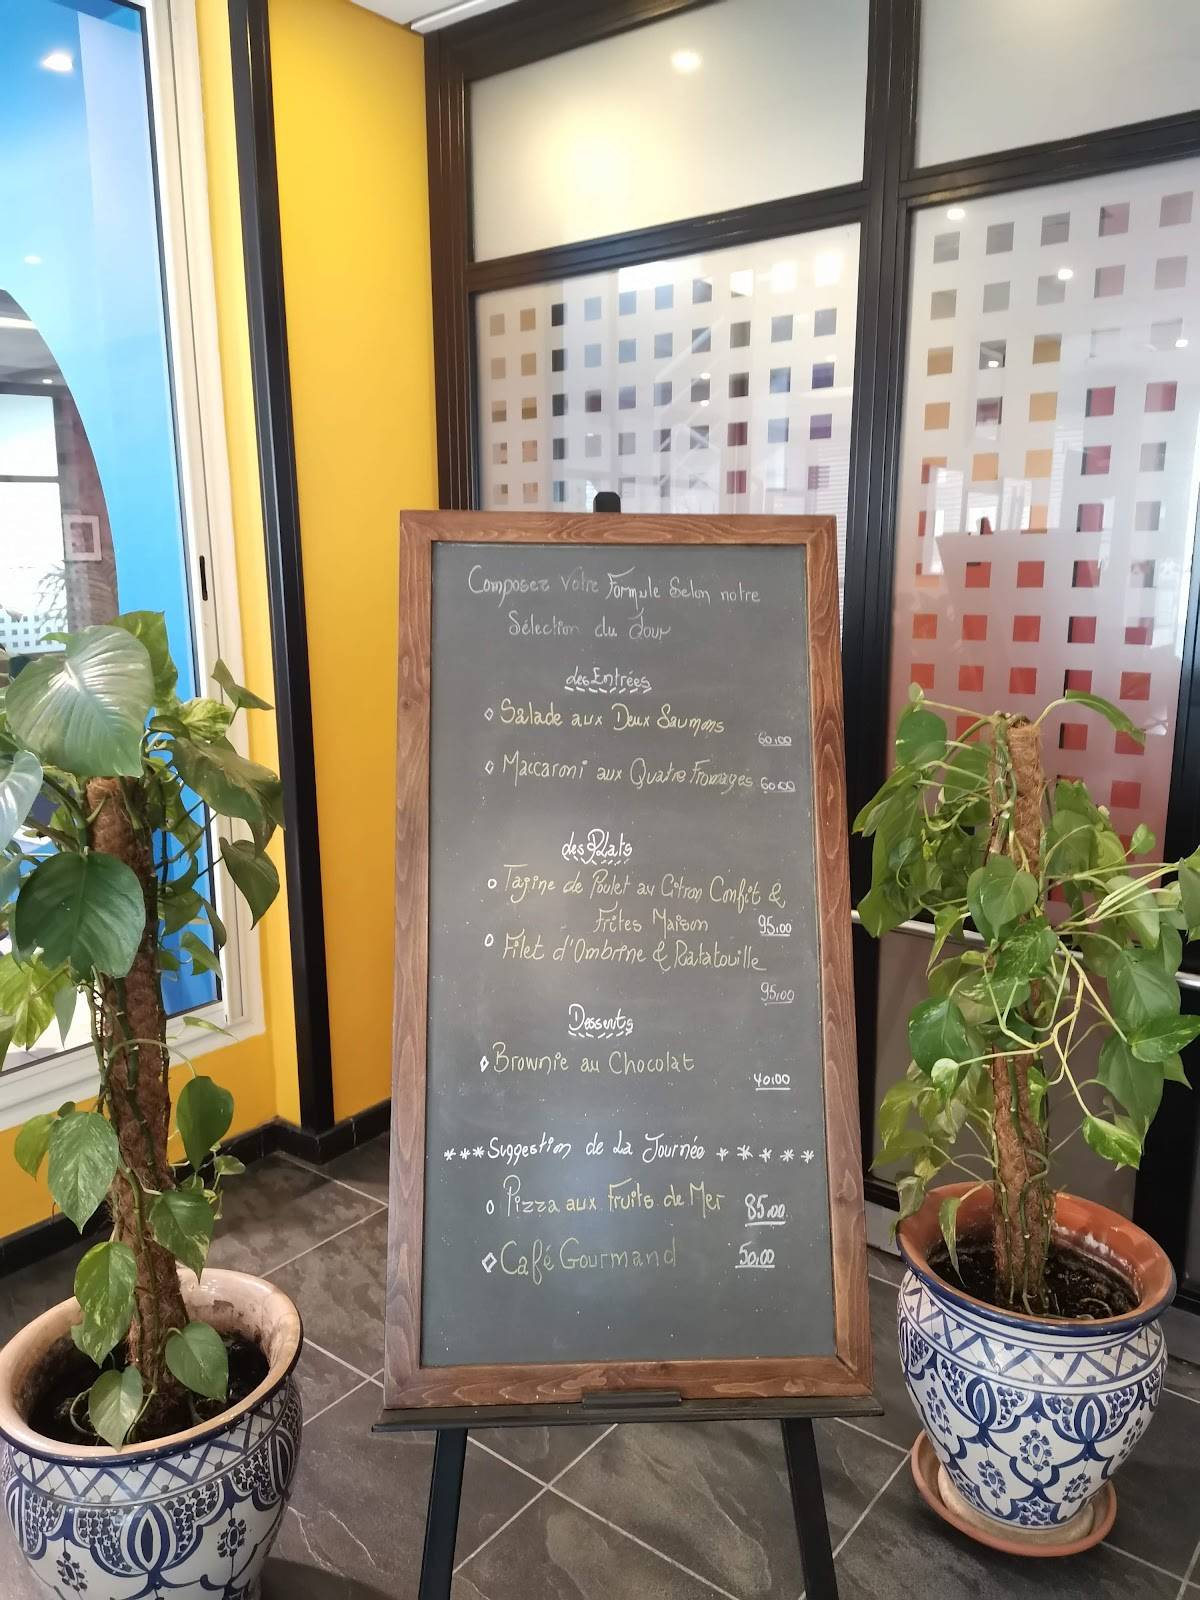 Composez Votre Formule Selon notre
Sélection du Jour
des Entrées
Salade aux Deux Saumons
60,00
Maccaroni aux Quatre Fromages 60,00
des Plats
Tagine de Poulet au Citron Confit &
Frites Maison 95,00
Filet d'Ombrine & Ratatouille
95,00
Desserts
Brownie au Chocolat
40,00
***Suggestion de La Journée *****
Pizza aux Fruits de Mer 85,00
Café Gourmand 50,00